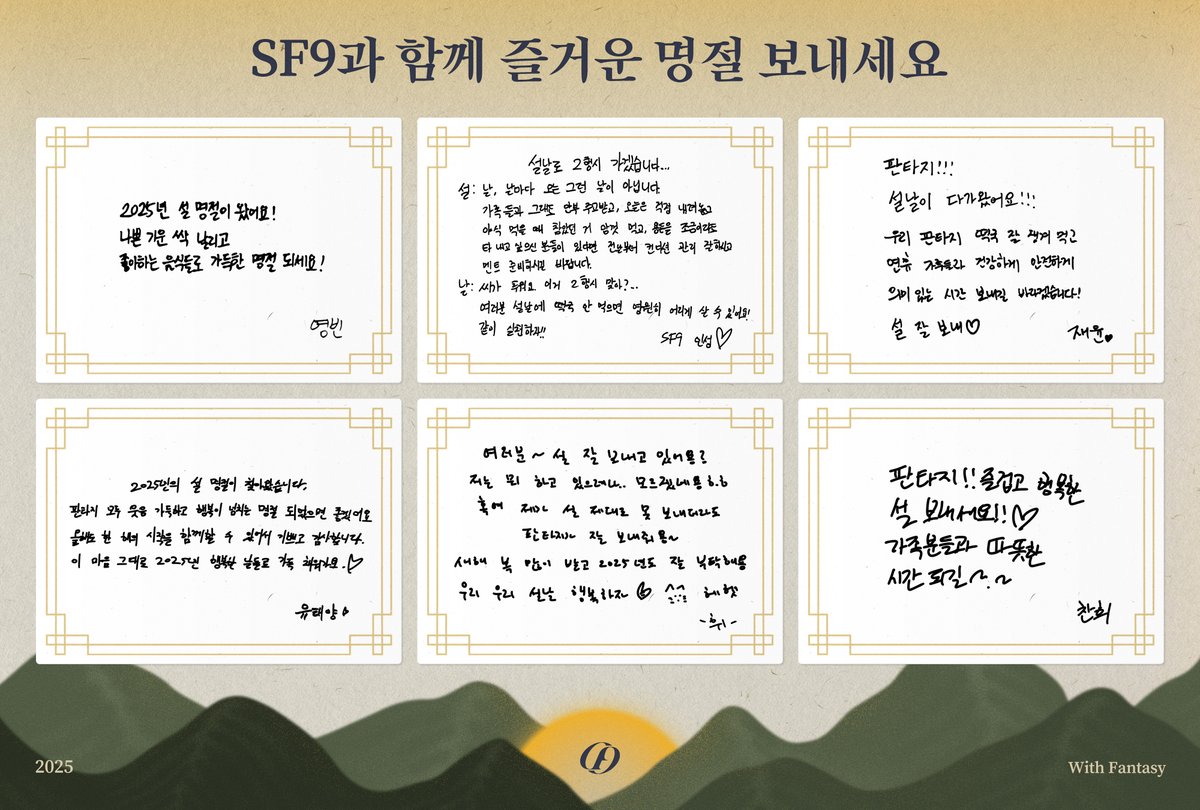 SF9과 함께 즐거운 명절 보내세요
2025년 설 명절이 왔어요!
나쁜 기운 싹 날리고
좋아하는 음식들로 가득한 명절 되세요!
영빈
설날로 2행시 가겠습니다...
설: 날, 날마다 오는 그런 날이 아닙니다
가족들과 그래도 안부 주고받고, 오늘은 걱정 내려놓고
야식 먹을 때 참았던 거 맘껏 먹고, 용돈을 조금이라도
타 내고 싶으신 분들이 있다면 전날부터 컨디션 관리 잘하시고
멘트 준비하시길 바랍니다.
날: 씨가 추워요 이거 2행시 맞아?...
여러분 설날에 떡국 안 먹으면 영원히 어리게 살 수 있어요!
같이 실천하자!!
SF9 인성♡
판타지!!!
설날이 다가왔어요!!!
우리 판타지 떡국 잘 챙겨 먹고
연휴 가족들과 건강하게 안전하게
의미 있는 시간 보내길 바라겠습니다!
설 잘 보내♡
재윤♥
2025년의 설 명절이 찾아왔습니다.
판타지 모두 웃음 가득하고 행복이 넘치는 명절 되었으면 좋겠어요
올해도 한 해의 시작을 함께할 수 있어서 기쁘고 감사합니다.
이 마음 그대로 2025년 행복한 날들로 가득 채워가요.♡
유태양
여러분~ 설 잘 보내고 있어용?
저는 뭐 하고 있으려나.. 모르겠네용ㅎㅎ
혹여 제가 설 제대로 못 보내더라도
판타지가 잘 보내줘용~
새해 복 많이 받고 2025년도 잘 부탁해용
우리 우리 설날 행복하자 헤헷
-휘-
판타지!! 즐겁고 행복한
설 보내세요!!♡
가족분들과 따뜻한
시간 되길~.~
찬희
2025
With Fantasy